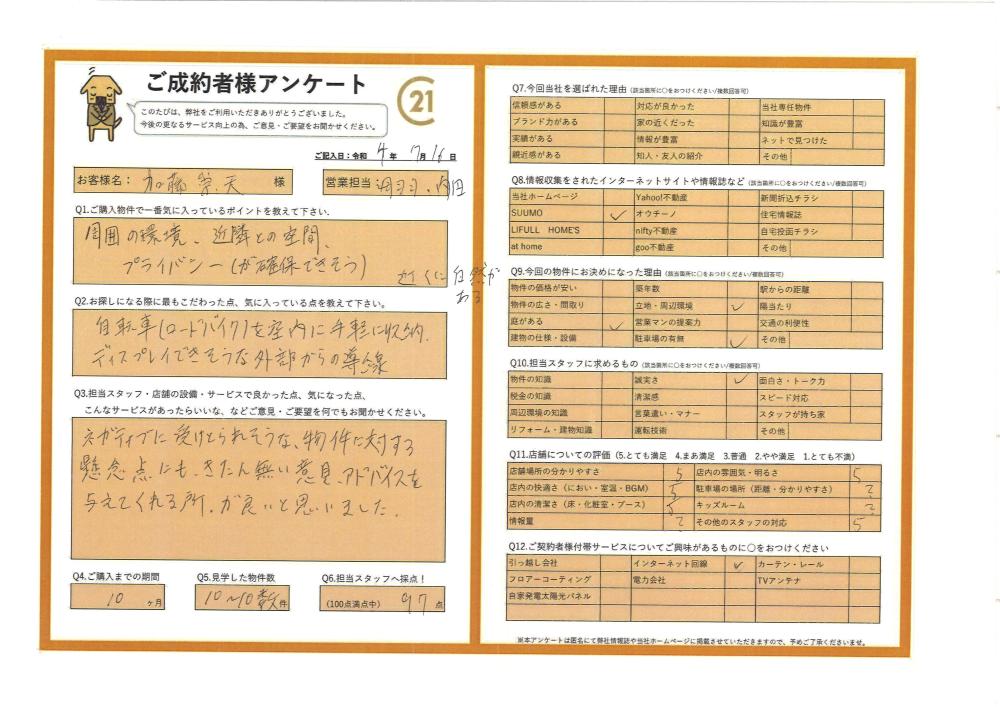 ご成約者様アンケート
21
このたびは、弊社をご利用いただきありがとうございました。
今後の更なるサービス向上の為、ご意見・ご要望をお聞かせください。
ご記入日:令和 4 年 7月 16 日
お客様名: 加藤 崇天 様
営業担当 内田
Q1.ご購入物件で一番気に入っているポイントを教えて下さい.
周囲の環境、近隣との空間、
プライバシー(が確保できそう)
近くに自然が
ある
Q2.お探しになる際に最もこだわった点、気に入っている点を教えて下さい。
自転車(ロードバイク)を室内に手軽に収納、
ディスプレイできそうな外部からの導線
Q3.担当スタッフ・店舗の設備・サービスで良かった点、気になった点、
こんなサービスがあったらいいな、などご意見・ご要望を何でもお聞かせください。
ネガティブに受けとられそうな、物件に対する
懸念点にも、きたん無い意見、アドバイスを
与えてくれる所、が良いと思いました.
Q4.ご購入までの期間
10 ヶ月
Q5.見学した物件数
10〜10数件
Q6.担当スタッフへ採点!
(100点満点中) 97 点
Q7.今回当社を選ばれた理由 (該当箇所に○をおつけください/複数回答可)
信頼感がある 対応が良かった 当社専任物件
ブランド力がある 家の近くだった 知識が豊富
実績がある 情報が豊富 ネットで見つけた
親近感がある 知人・友人の紹介 その他
Q8.情報収集をされたインターネットサイトや情報誌など (該当箇所に○をおつけください/複数回答可)
当社ホームページ Yahoo!不動産 新聞折込チラシ
SUUMO ✓ オウチーノ 住宅情報誌
LIFULL HOME'S nifty不動産 自宅投函チラシ
at home goo不動産 その他
Q9.今回の物件にお決めになった理由 (該当箇所に○をおつけください/複数回答可)
物件の価格が安い 築年数 駅からの距離
物件の広さ・間取り 立地・周辺環境 ✓ 陽当たり
庭がある ✓ 営業マンの提案力 交通の利便性
建物の仕様・設備 駐車場の有無 ✓ その他
Q10.担当スタッフに求めるもの (該当箇所に○をおつけください/複数回答可)
物件の知識 誠実さ ✓ 面白さ・トーク力
税金の知識 清潔感 スピード対応
周辺環境の知識 言葉遣い・マナー スタッフが持ち家
リフォーム・建物知識 運転技術 その他
Q11.店舗についての評価 (5.とても満足 4.まあ満足 3.普通 2.やや満足 1.とても不満)
店舗場所の分かりやすさ 5 店内の雰囲気・明るさ 5
店内の快適さ(におい・室温・BGM) 5 駐車場の場所(距離・分かりやすさ) ?
店内の清潔さ(床・化粧室・ブース) 5 キッズルーム ?
情報量 ? その他のスタッフの対応 5
Q12.ご契約者様付帯サービスについてご興味があるものに○をおつけください
引っ越し会社 インターネット回線 ✓ カーテン・レール
フロアーコーティング 電力会社 TVアンテナ
自家発電太陽光パネル
※本アンケートは匿名にて弊社情報誌や当社ホームページに掲載させていただきますので、予めご了承くださいませ。